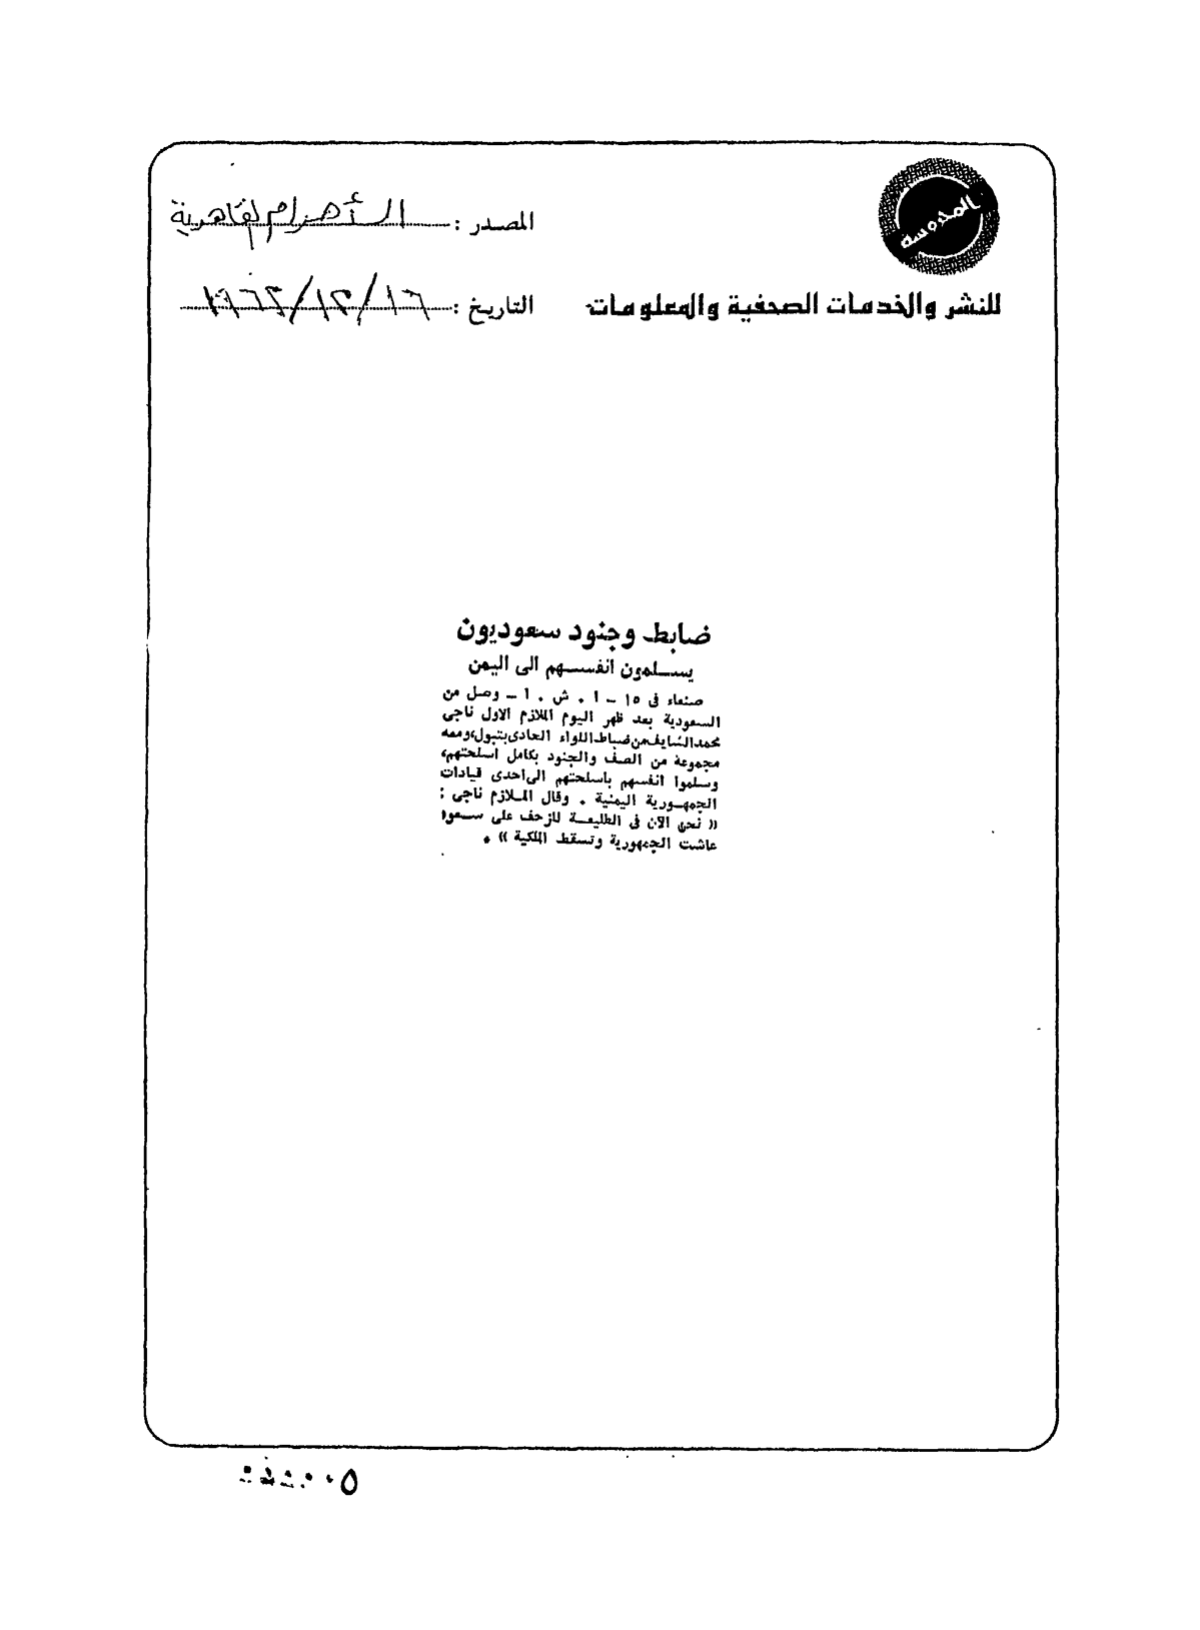 المحروسة
المصدر : الأهرام القاهرية
للنشر والخدمات الصحفية والمعلومات
التاريخ : ١٩٦٢/١٢/١٦
ضابط وجنود سعوديون
يسلمون انفسهم الى اليمن
صنعاء فى ١٥ – ا . ش . ا – وصل من
السعودية بعد ظهر اليوم الملازم الاول ناجى
محمد الشايف من ضباط اللواء الحادى بتبوك، ومعه
مجموعة من الصف والجنود بكامل اسلحتهم،
وسلموا انفسهم باسلحتهم الى احدى قيادات
الجمهورية اليمنية . وقال الملازم ناجى :
« نحن الآن فى الطليعة للزحف على سعود
عاشت الجمهورية وتسقط الملكية » .